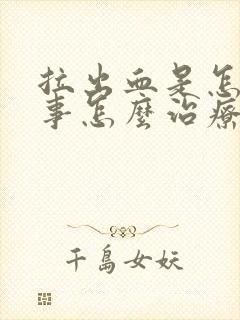 拉出血是怎
事怎麼治療
千島女妖